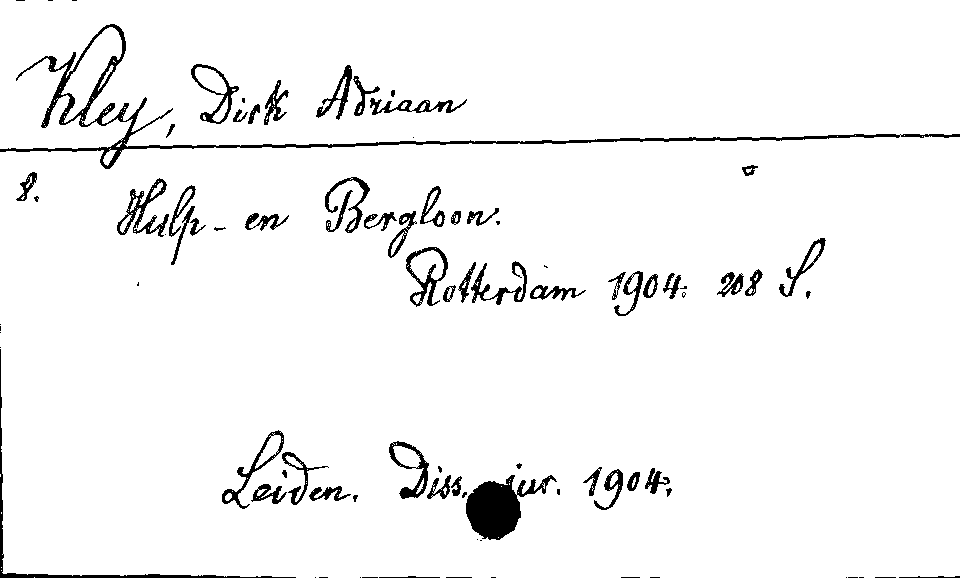 Kley, Dirk Adriaan
8.
Hulp- en Bergloon.
Rotterdam 1904. 208 S.
Leiden. Diss. jur. 1904.